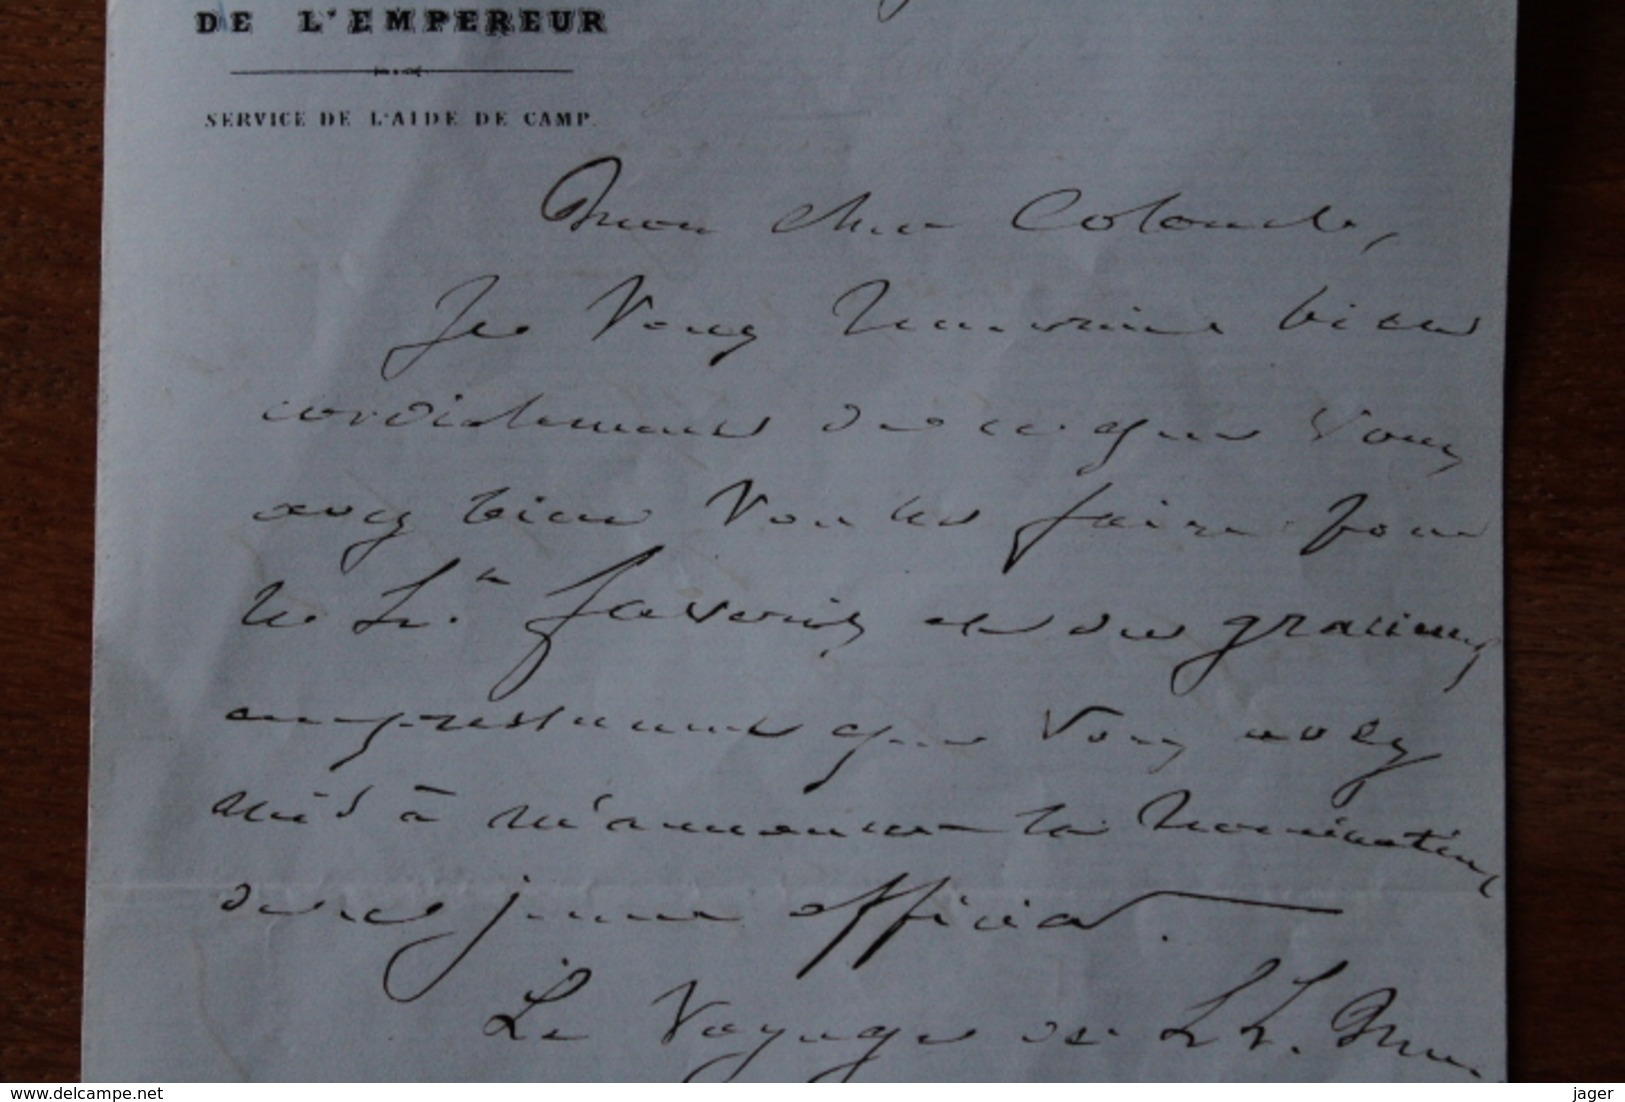 DE L'EMPEREUR
SERVICE DE L'AIDE DE CAMP.
Mon cher Colonel,
Je vous remercie bien
cordialement de ce que vous
avez bien voulu faire pour
le Lt favoris et du gracieux
empressement que vous avez
mis à m'annoncer la nomination
de ce jeune officier.
Le voyage de LL. M
© www.delcampe.net
jager